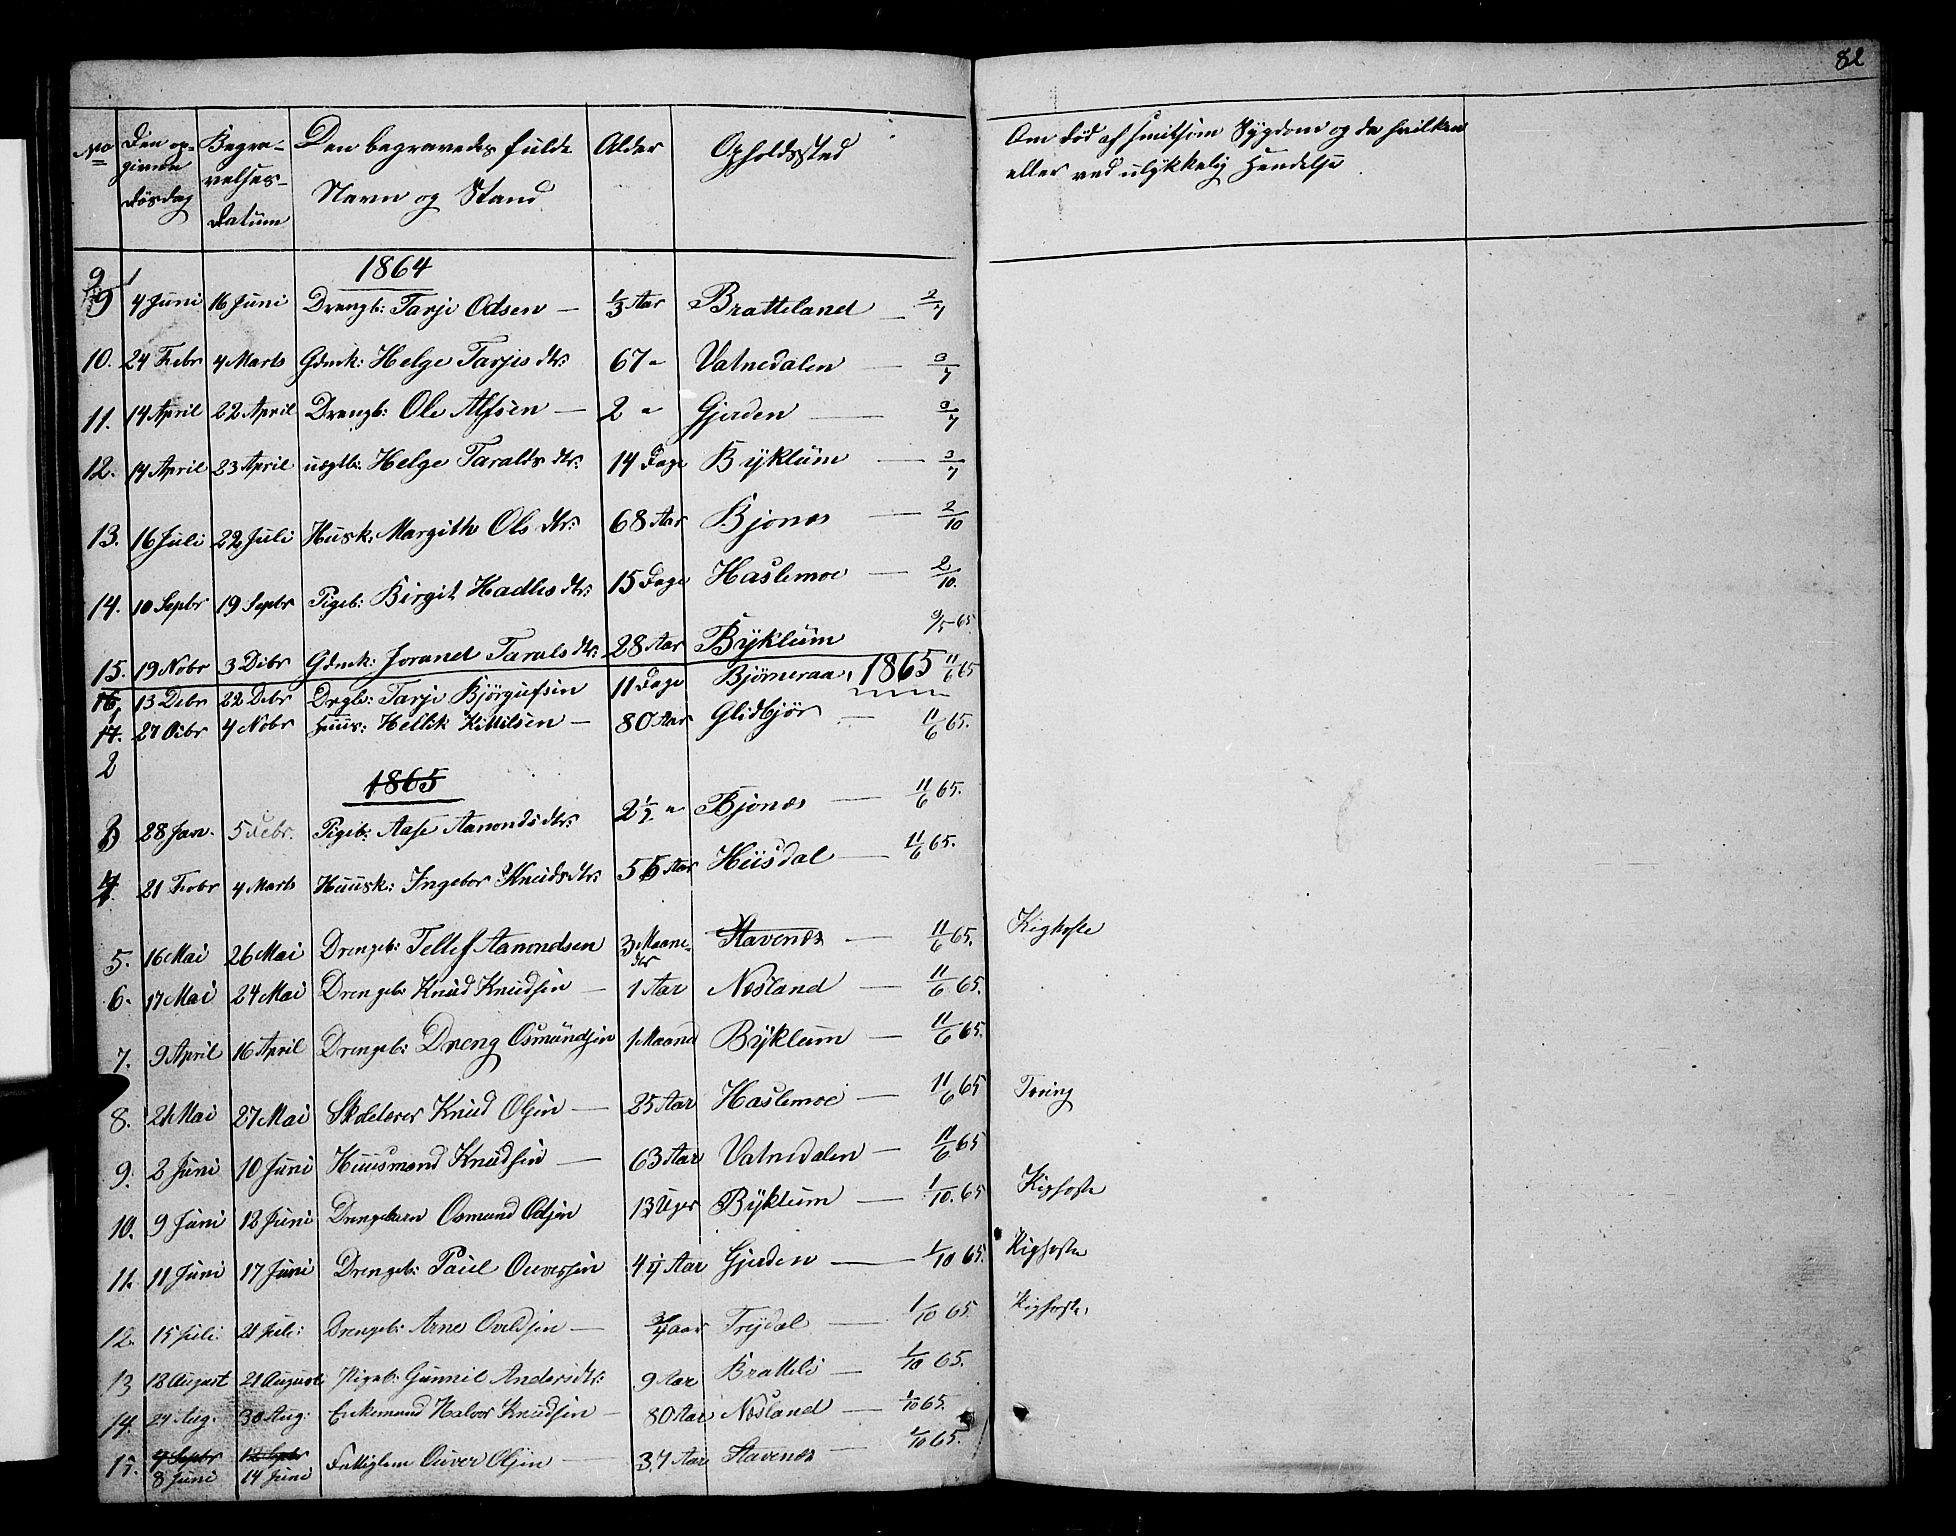 82
No Den op- Begra- Den begravedes fulde Alder Opholdssted Om død af smitsom Sygdom og da hvilken
givne velses- Navn og Stand eller ved ulykkelig Hendelse
Døsdag Datum
1864
9 4 Juni 16 Juni Drengb: Tarje Odsen — 1/3 Aar Bratteland — 2/7
10. 24 Febr 4 Marts Gdmk: Helge Tarjis dtr: 67 " Vatnedalen — 3/7
11. 14 April 22 April Drengb: Ole Alfsen — 2 " Gjerden — 3/7
12. 14 April 23 April uægtb: Helge Taralds dtr: 14 Dage Byklum — 3/7
13. 16 Juli 22 Juli Husk: Margith Ols dtr: 68 Aar Bjones — 2/10
14. 10 Sepbr 19 Sepbr Pigeb: Birgit Hadles dtr: 15 Dage Haslemoe — 2/10.
15. 19 Nobr 3 Dcbr Gdmk: Jorand Tarals dtr: 28 Aar Byklum 9/5 65
1865
16, 13 Debr 22 Debr Drgb: Tarje Björgufsen 11 Dage Bjørneraa, 11/6 65
1
17. 27 Ocbr 4 Nobr Huus: Hellik Kittilsen — 80 Aar Glidbjør — 11/6 65.
2
1865
3 28 Jan. 5 Febr. Pigeb: Aase Aanonds dtr: 2 1/2 " Bjones — 11/6 65.
4. 21 Febr 4 Marts Huusk: Ingebor Knuds dtr: 55 Aar Husdal — 11/6 65.
5. 16 Mai 26 Mai Drengeb: Tellef Aanondsen 3 Maane- Stavenes — 11/6 65. Kighoste
der
6. 17 Mai 24 Mai Drengeb: Knud Knudsen — 1 Aar Nesland — 11/6 65.
7. 9 April 16 April Drengeb: Dreng Osmundsen 1 Maaned Byklum — 11/6 65.
8. 21 Mai 27 Mai Skolelærer Knud Olsen — 25 Aar Haslemoe — 11/6 65 Tæring
9. 2 Juni 10 Juni Huusmand Knudsen — 63 Aar Vatnedalen — 11/6 65
10. 9 Juni 12 Juni Drengebarn Osmund Odsen 13 Uger Byklum — 1/10. 65 Kighoste
11. 11 Juni 17 Juni Drengeb: Paul Ouversen 4 Aar Gjerden — 1/10 65. Kighoste
12. 15 Juli 21 Juli: Drengeb: Arne Ovaldsen — 3/4 aar Trydal — 1/10 65. Kighoste,
13 12 August 21 August Pigeb: Gunnil Anders dtr: 9 Aar Bratteli — 1/10 65.
14. 24 Aug. 30 Aug: Enkemand Halvor Knudsen — 80 Aar Nesland — 1/10 65.
15. 7 Sepbr 12 Sepbr Fattiglem Ouver Olsen — 37 Aar Stavenes — 1/10 65.
8 Juni 14 Juni